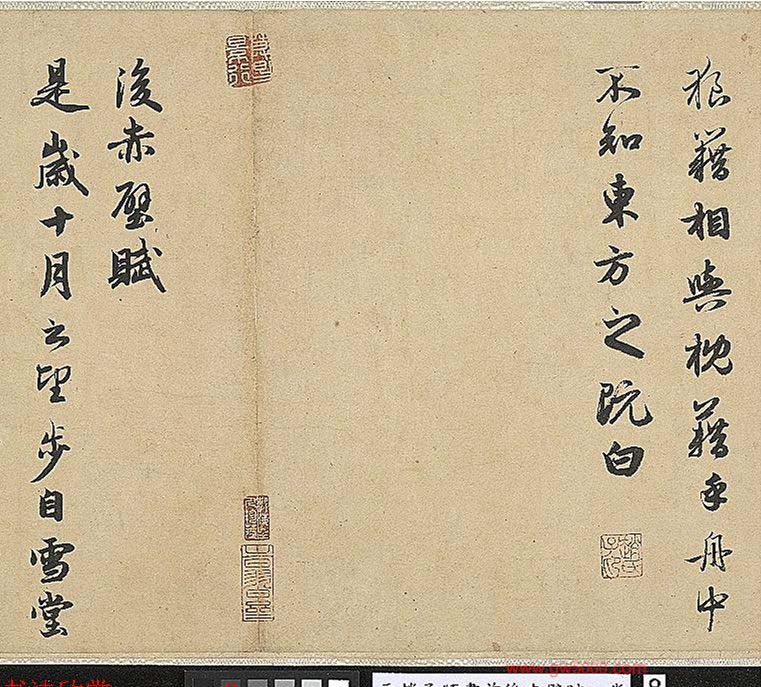 狼藉相與枕藉乎舟中
不知東方之既白
後赤壁賦
是歲十月之望步自雪堂
www.gw5000.com
书法欣赏